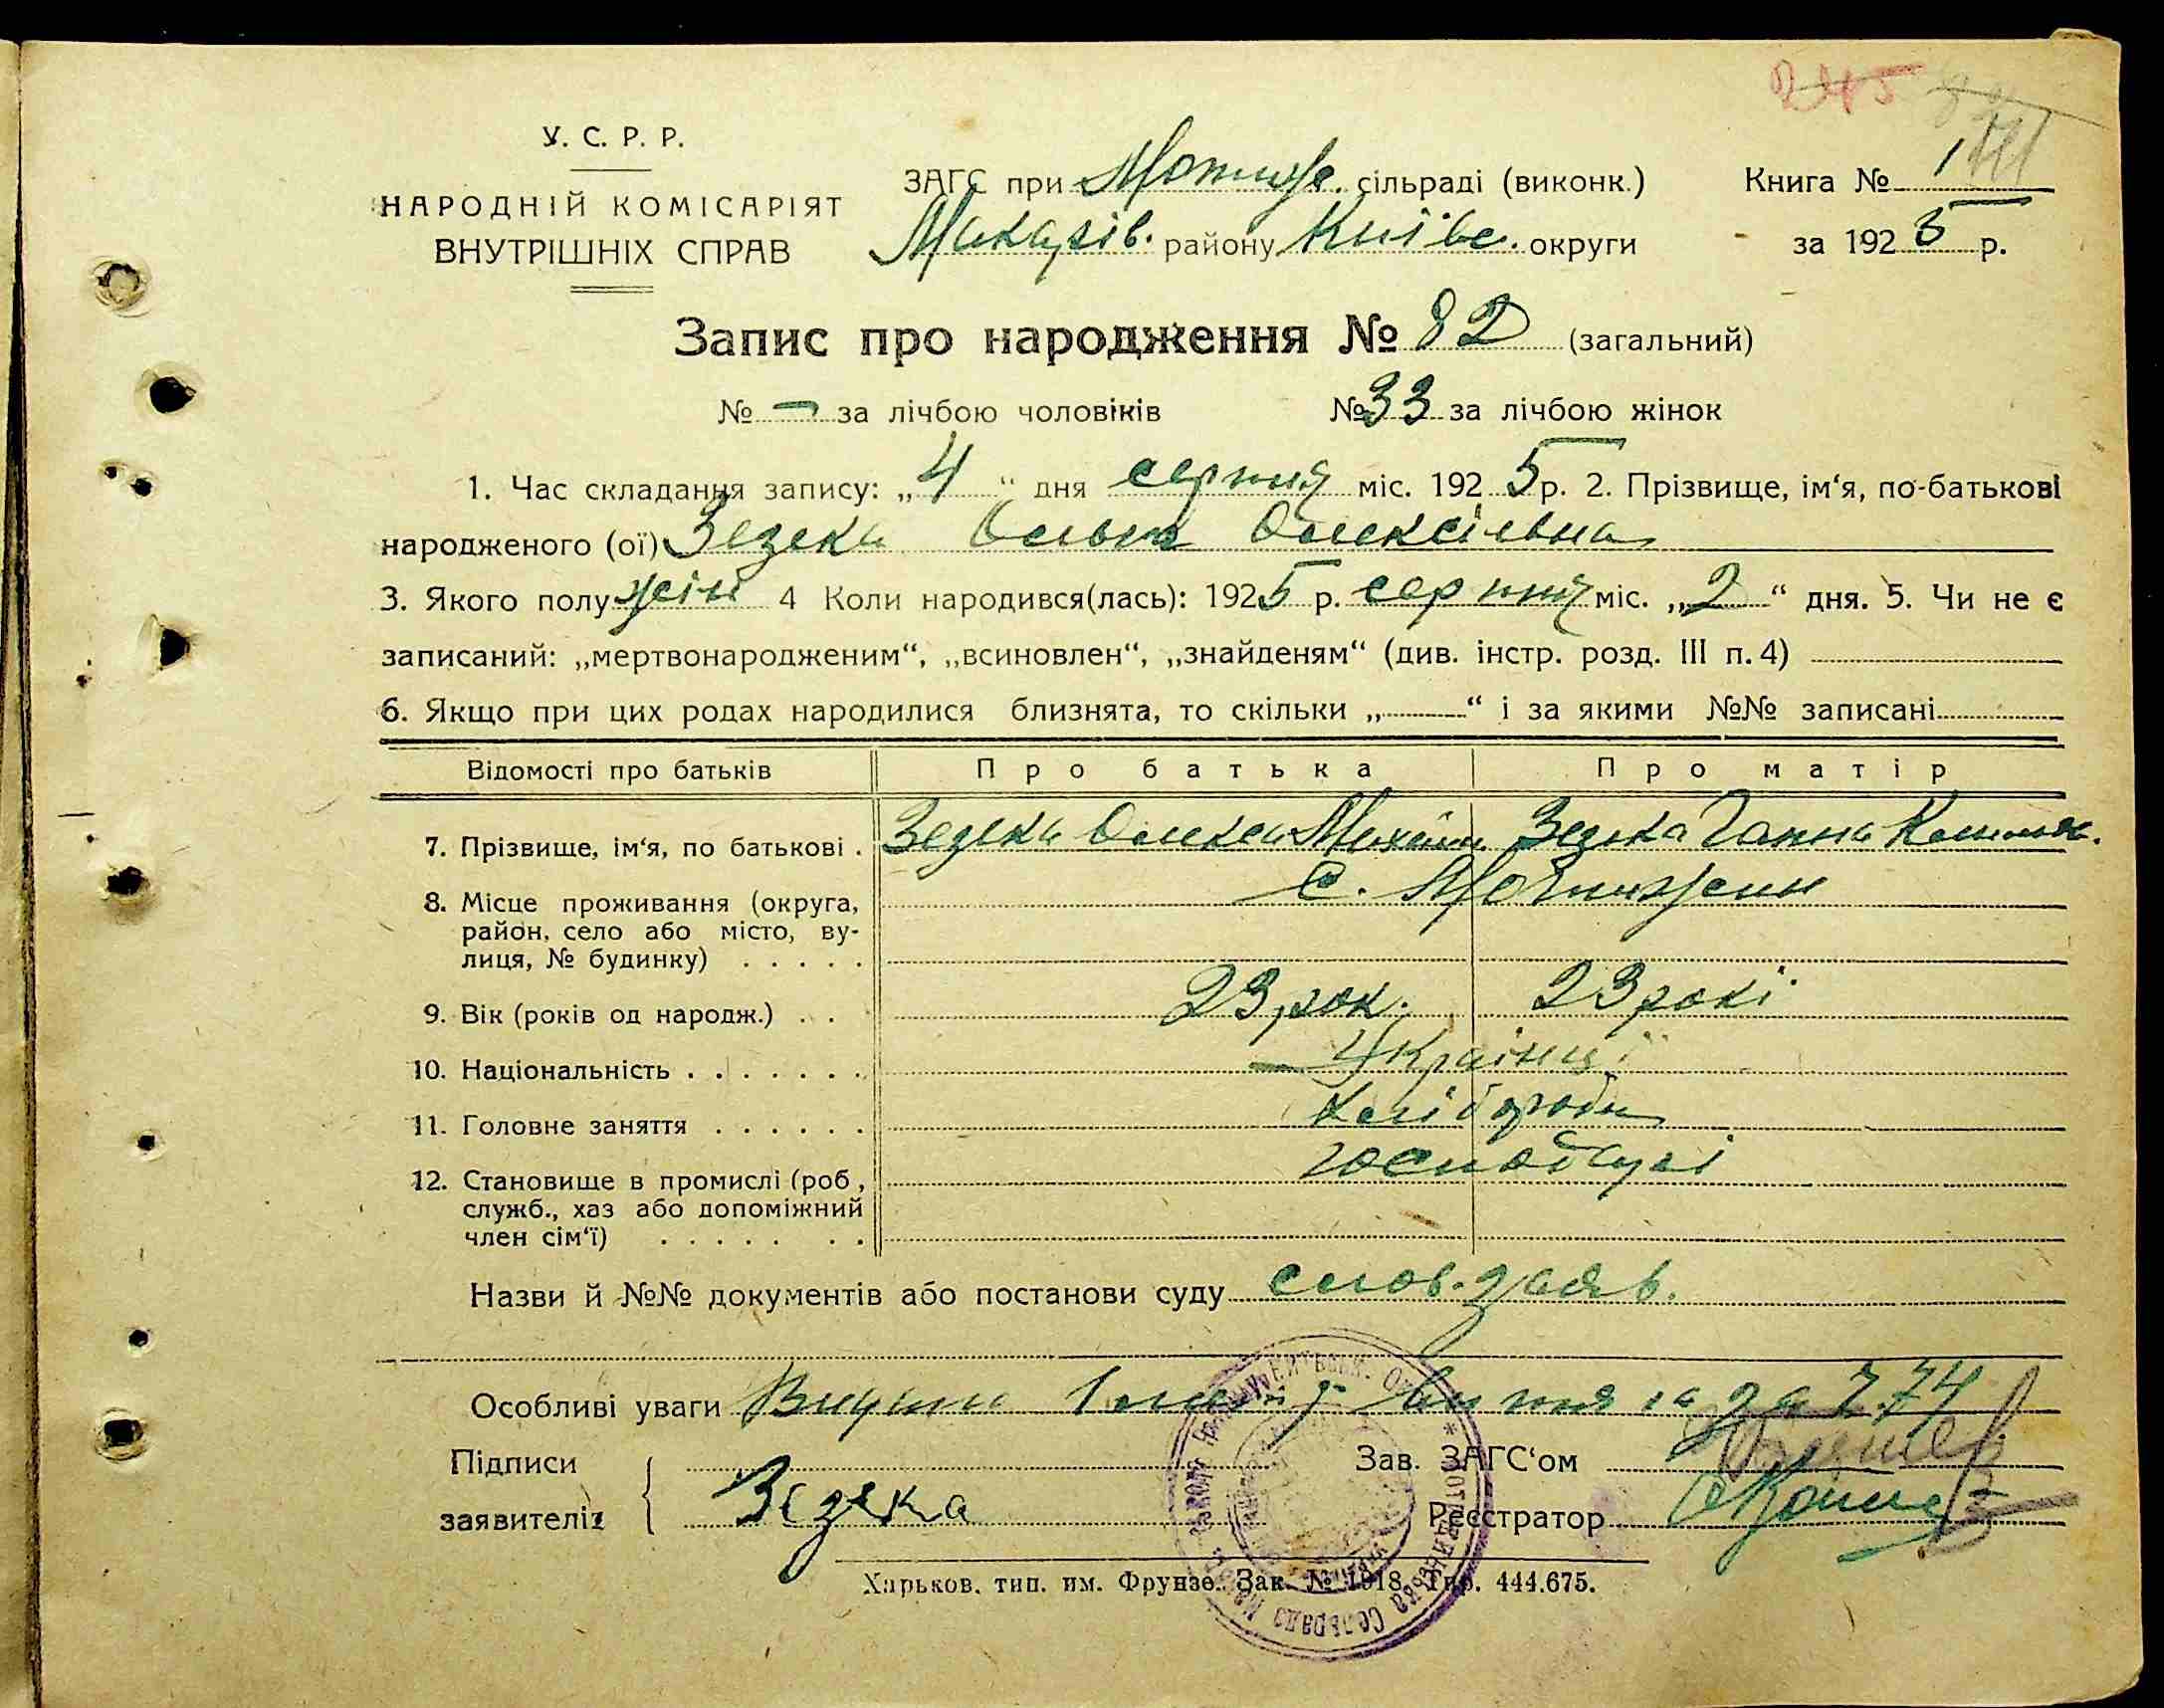 245 82
У. С. Р. Р.
НАРОДНІЙ КОМІСАРІЯТ
ВНУТРІШНІХ СПРАВ
ЗАГС при Мотиж. сільраді (виконк.)
Макарів. району Київс. округи
Книга № 1
за 1925 р.
Запис про народження № 82 (загальний)
№ — за лічбою чоловіків № 33 за лічбою жінок
1. Час складання запису: „4“ дня серпня міс. 1925 р. 2. Прізвище, ім‘я, по-батькові
народженого (ої) Зезека Ольга Олексіївна
3. Якого полу жін 4 Коли народився(лась): 1925 р. серпня міс. „2“ дня. 5. Чи не є
записаний: „мертвонародженим“, „всиновлен“, „знайденям“ (див. інстр. розд. III п. 4)
6. Якщо при цих родах народилися близнята, то скільки „ “ і за якими №№ записані
Відомості про батьків Про батька Про матір
7. Прізвище, ім‘я, по батькові . Зезека Олекса Михайл. Зезека Ганна
8. Місце проживання (округа, район, село або місто, вулиця, № будинку) . . . . . с. Мотижин
9. Вік (років од народж.) . . 23 рок. 23 рокі
10. Національність . . . . . . . Українці
11. Головне заняття . . . . . . Хлібороби
12. Становище в промислі (роб., служб., хаз або допоміжний член сім‘ї) . . . . . . . господарі
Назви й №№ документів або постанови суду слов. заяв.
Особливі уваги за 74
Підписи заявителів Зезека
Зав. ЗАГС‘ом
Реєстратор
Харьков, тип. им. Фрунзе. Зак. № 1918. Тир. 444.675.